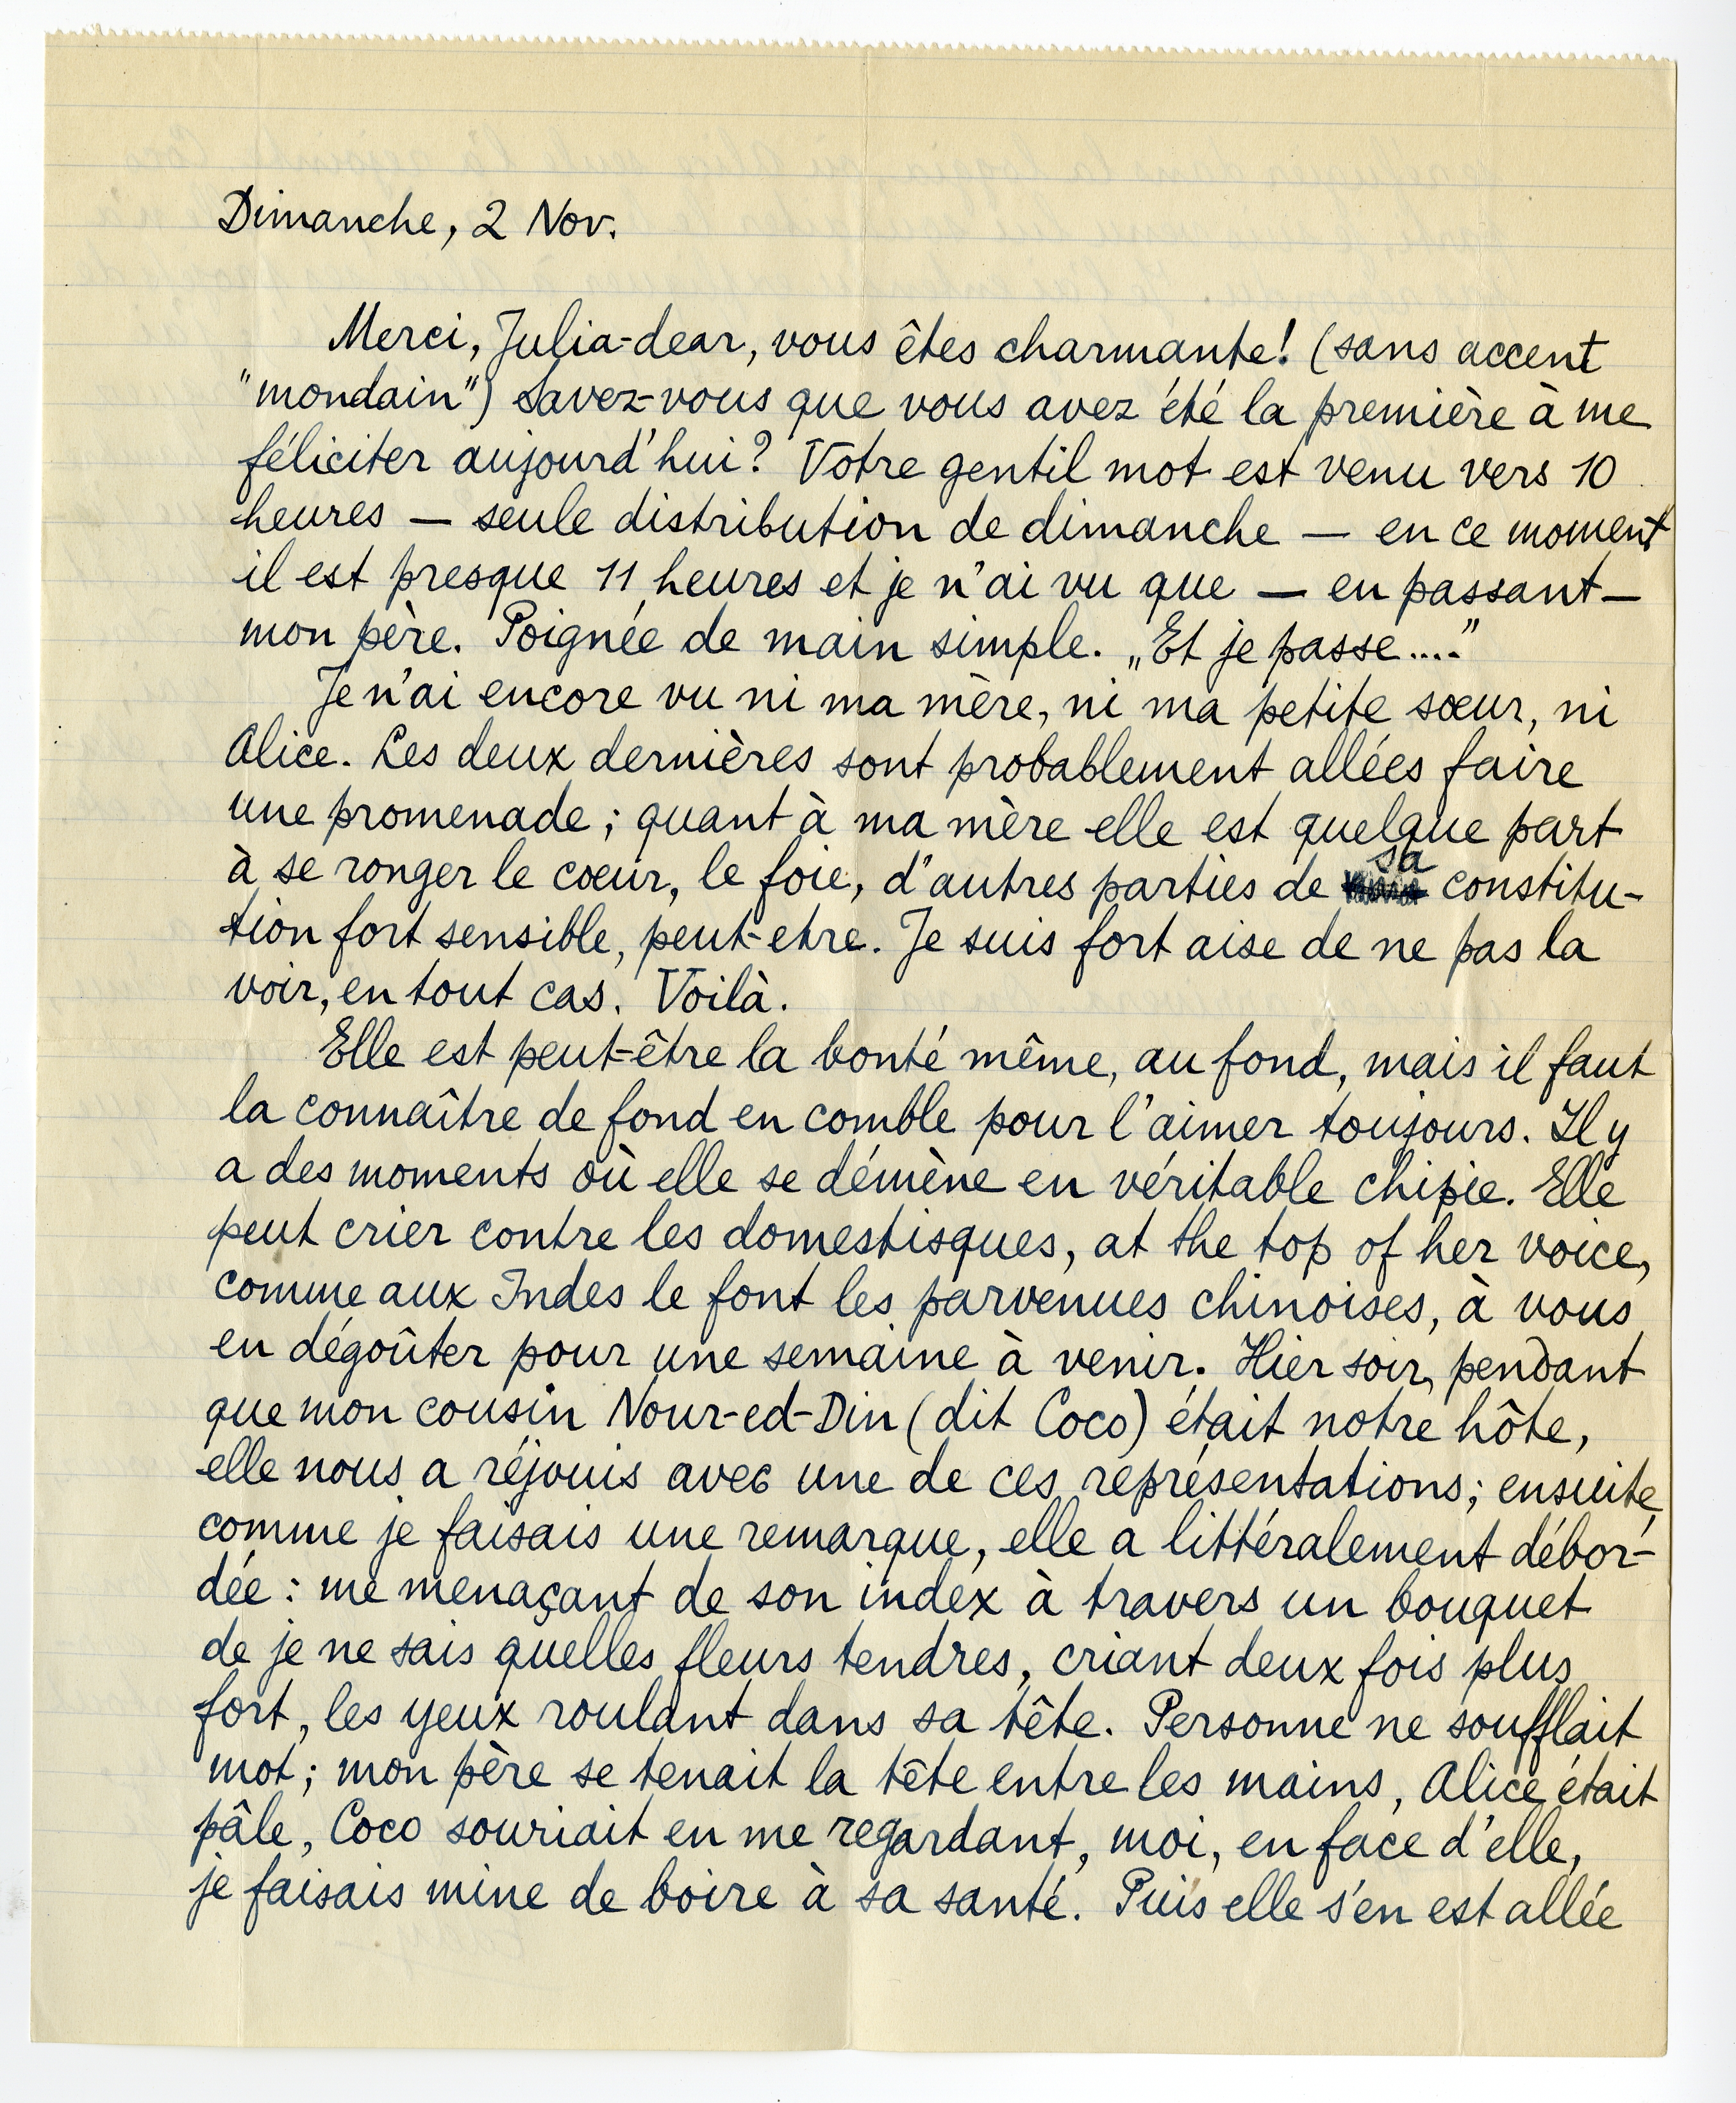 Dimanche, 2 Nov.
Merci, Julia-dear, vous êtes charmante! (sans accent
"mondain") Savez-vous que vous avez été la première à me
féliciter aujourd'hui? Votre gentil mot est venu vers 10
heures — seule distribution de dimanche — en ce moment
il est presque 11 heures et je n'ai vu que — en passant —
mon père. Poignée de main simple. „Et je passe...."
Je n'ai encore vu ni ma mère, ni ma petite sœur, ni
Alice. Les deux dernières sont probablement allées faire
une promenade; quant à ma mère elle est quelque part
à se ronger le cœur, le foie, d'autres parties de sa constitu-
tion fort sensible, peut-etre. Je suis fort aise de ne pas la
voir, en tout cas. Voilà.
Elle est peut-être la bonté même, au fond, mais il faut
la connaître de fond en comble pour l'aimer toujours. Il y
a des moments où elle se démène en véritable chipie. Elle
peut crier contre les domestisques, at the top of her voice,
comme aux Indes le font les parvenues chinoises, à vous
en dégoûter pour une semaine à venir. Hier soir, pendant
que mon cousin Nour-ed-Din (dit Coco) était notre hôte,
elle nous a réjouis avec une de ces représentations; ensuite,
comme je faisais une remarque, elle a littéralement débor-
dée: me menaçant de son index à travers un bouquet
de je ne sais quelles fleurs tendres, criant deux fois plus
fort, les yeux roulant dans sa tête. Personne ne soufflait
mot; mon père se tenait la tête entre les mains, Alice était
pâle, Coco souriait en me regardant, moi, en face d'elle,
je faisais mine de boire à sa santé. Puis elle s'en est allée